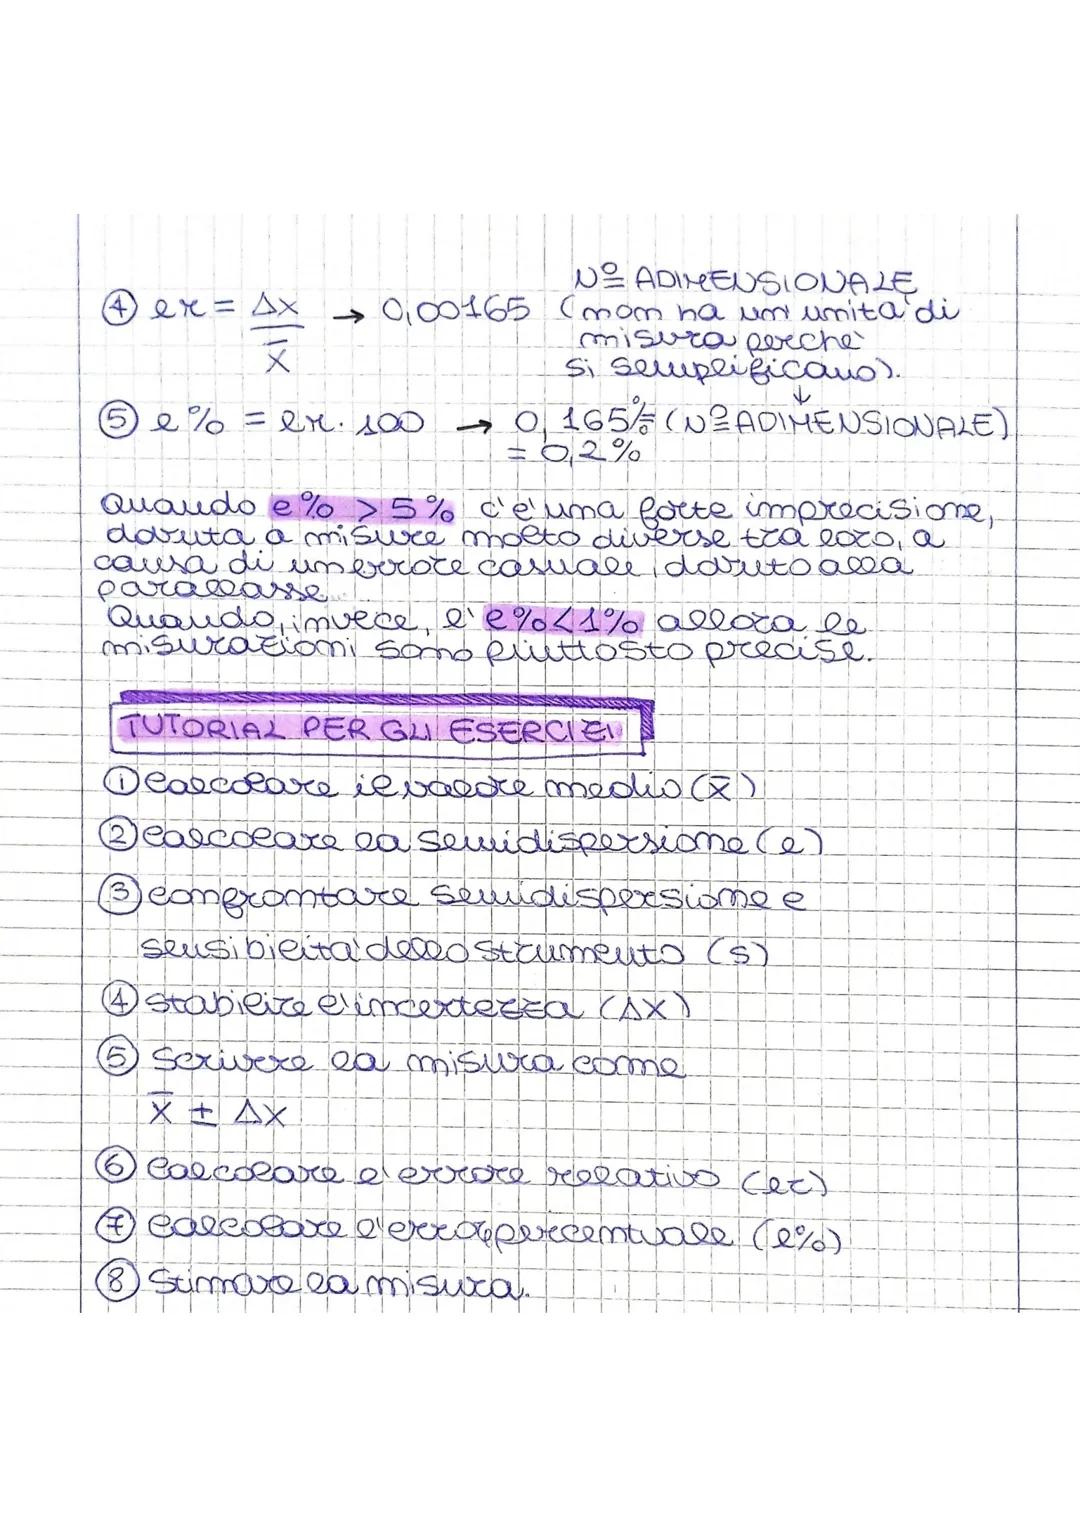 Nº ADIMENSIONALE
④ er = Δx / x̄ → 0,00165 (non ha un'unità di
misura perchè
si semplificano).
↓
⑤ e% = er · 100 → 0,165% = (Nº ADIMENSIONALE)
= 0,2%
Quando e% > 5% c'è una forte imprecisione,
dovuta a misure molto diverse tra loro, a
causa di un errore casuale, dovuto alla
parallasse.
Quando, invece, l' e% < 1% allora le
misurazioni sono piuttosto precise.
TUTORIAL PER GLI ESERCIZI
① Calcolare il valore medio (x̄)
② Calcolare la semidispersione (e)
③ Confrontare semidispersione e
sensibilità dello strumento (s)
④ Stabilire l'incertezza (Δx)
⑤ Scrivere la misura come
x̄ ± Δx
⑥ Calcolare l'errore relativo (er)
⑦ Calcolare l'errore percentuale (e%)
⑧ Stimare la misura.